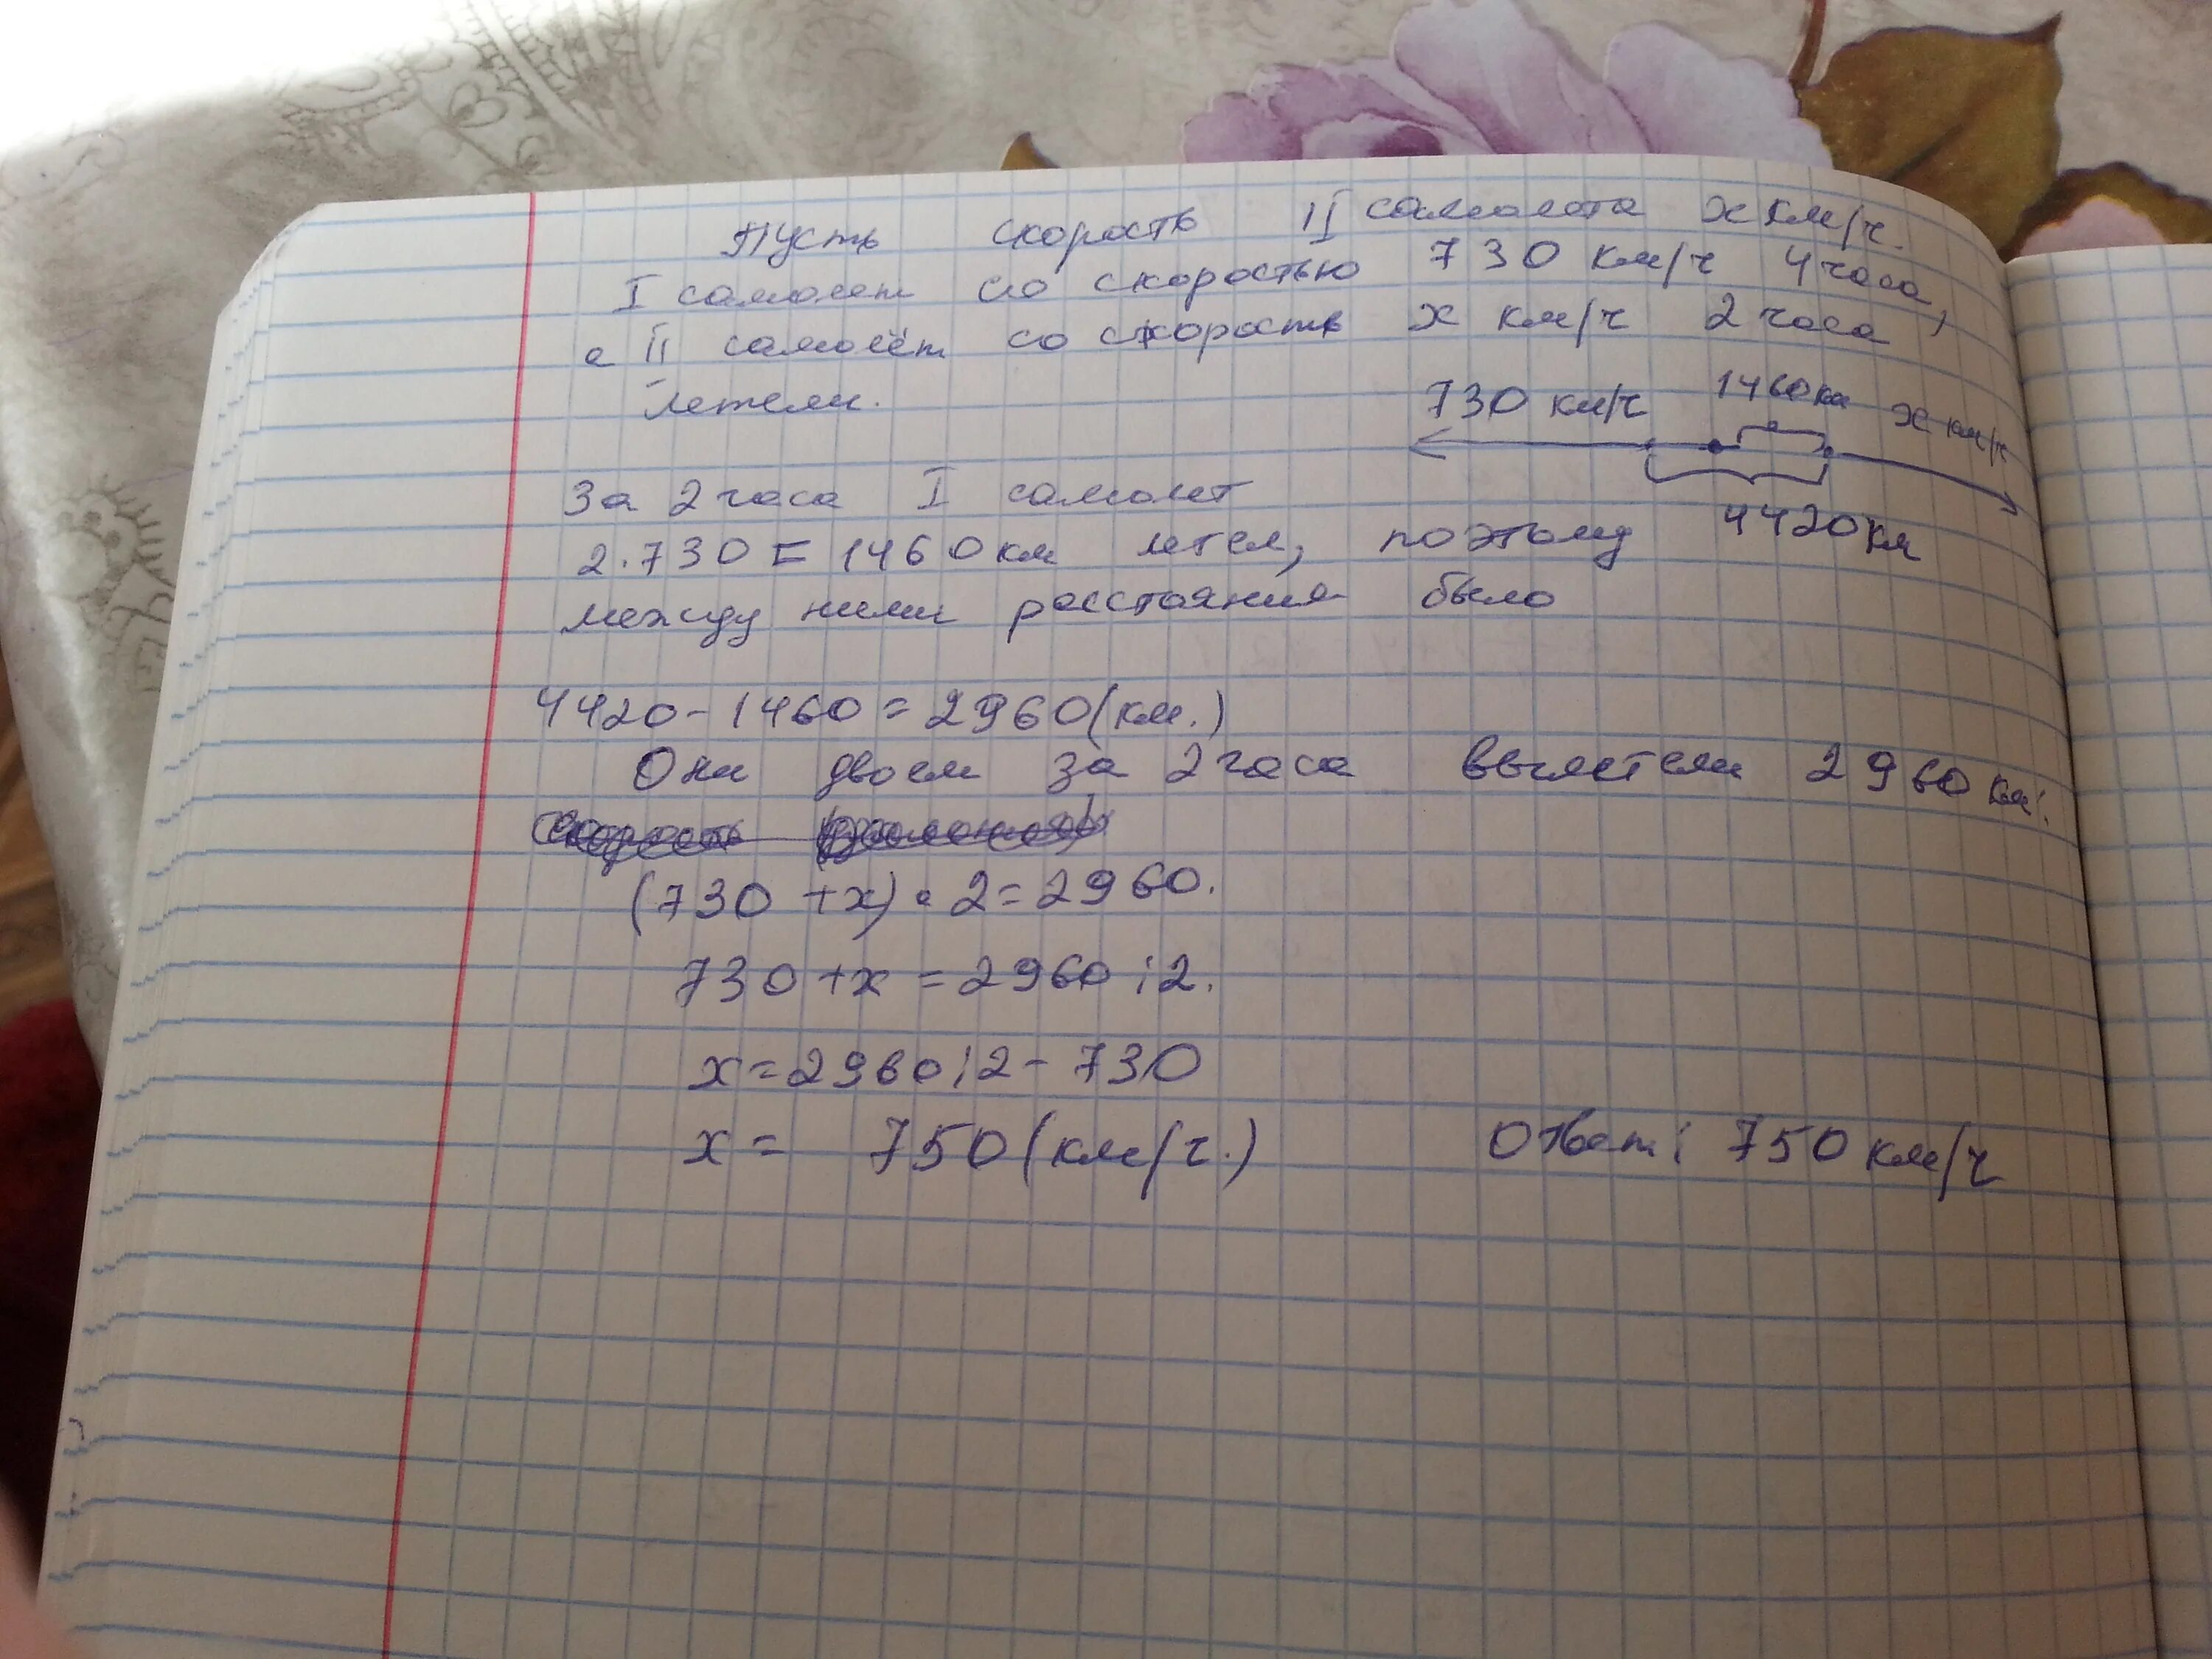 Пусть скорость II самолета x км/ч.
I самолет со скоростью 730 км/ч 4 часа,
а II самолёт со скорость x км/ч 2 часа
летели.
730 км/ч 1460 км x км/ч
4420 км
За 2 часа I самолет
2·730 = 1460 км летел, поэтому
между ними расстояния было
4420 - 1460 = 2960 (км.)
Они двоем за 2 часа вылетели 2960 км:
(730 + x) · 2 = 2960.
730 + x = 2960 : 2.
x = 2960 : 2 - 730
x = 750 (км/ч.)
Ответ: 750 км/ч